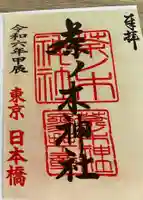 奉拝
茶ノ木神社
令和六年甲辰
東京 日本橋